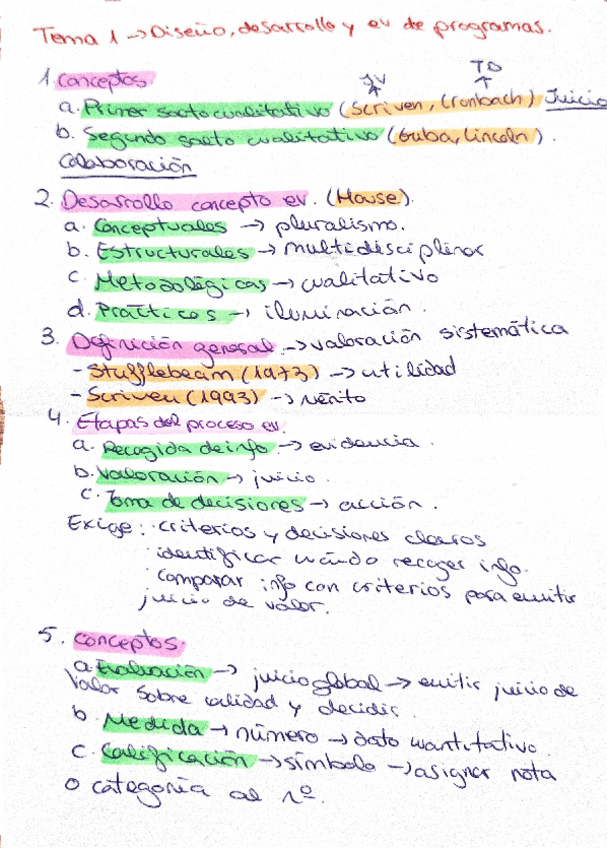 Tema 1 → Diseño, desarrollo y ev de programas.
1. Conceptos.
JV TD
a. Primer salto cualitativo (Scriven, Cronbach) Juicio
b. Segundo salto cualitativo (Guba, Lincoln).
Colaboración
2. Desarrollo concepto ev. (House).
a. Conceptuales → pluralismo.
b. Estructurales → multidisciplinar
c. Metodológicas → cualitativo
d. Prácticos → iluminación.
3. Definición general → valoración sistemática
- Stufflebeam (1973) → utilidad
- Scriven (1993) → mérito
4. Etapas del proceso ev.
a. Recogida de info → evidencia.
b. Valoración → juicio.
c. Toma de decisiones → acción.
Exige: · criterios y decisiones claros
· identificar cuándo recoger info.
· comparar info con criterios para emitir
juicio de valor.
5. Conceptos.
a. Evaluación → juicio global → emitir juicio de
valor sobre calidad y decidir.
b. Medida → número → dato cuantitativo.
c. Calificación → símbolo → asignar nota
o categoría al nº.